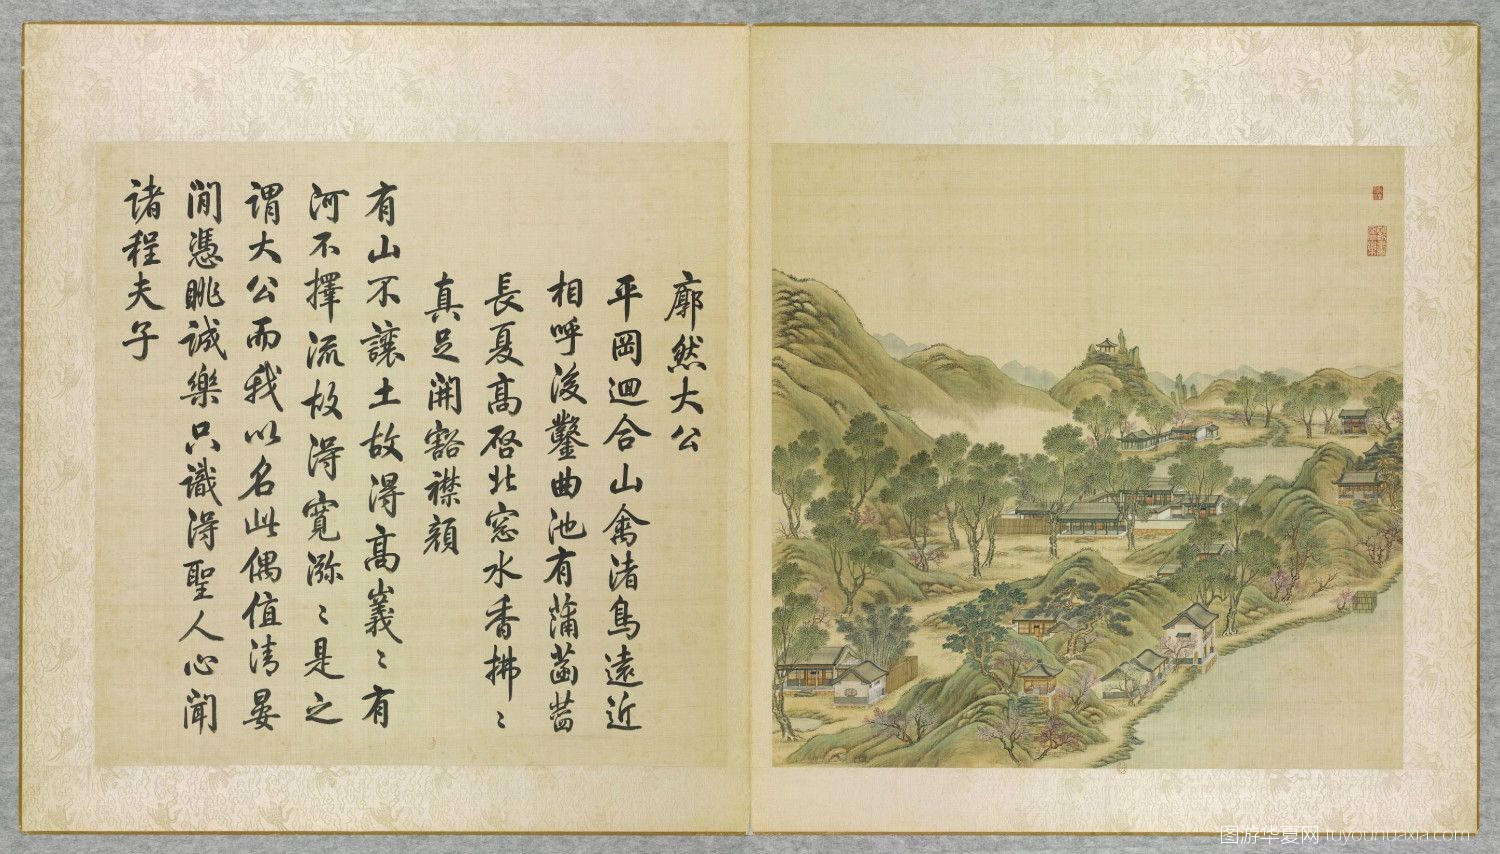 廓然大公
平岡迴合山禽渚鳥遠近
相呼後鑿曲池有蒲菡萏
長夏高啓北窓水香拂〻
真足開豁襟顔
有山不讓土故得高嶪〻有
河不擇流故得寬瀰〻是之
謂大公而我以名此偶值清晏
閒憑眺誠樂只識得聖人心聞
諸程夫子
图游华夏网 tuyouhuaxia.com